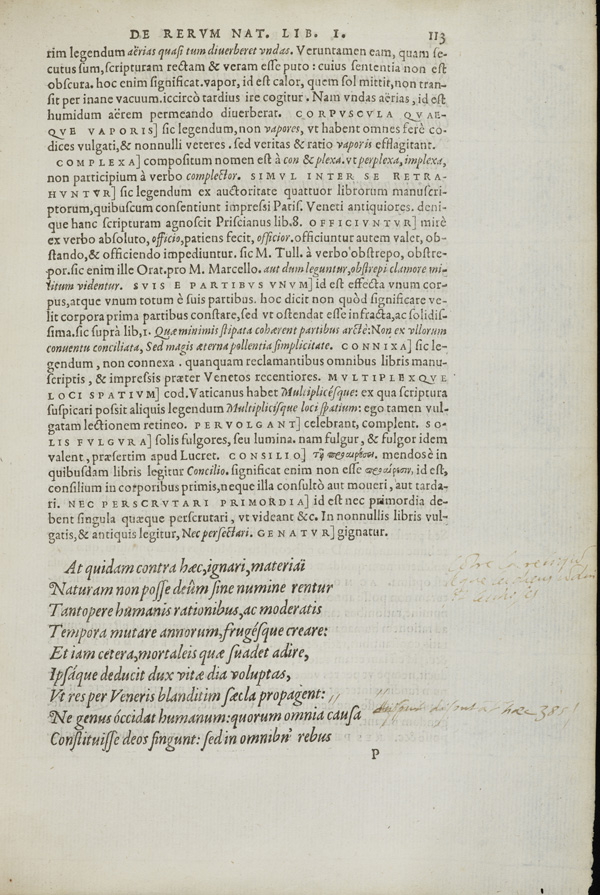 DE RERVM NAT. LIB. I. 113
rim legendum aërias quasi tum diuerberet vndas. Veruntamen eam, quam se-
cutus sum, scripturam rectam & veram esse puto: cuius sententia non est
obscura. hoc enim significat. vapor, id est calor, quem sol mittit, non tran-
sit per inane vacuum. iccircò tardius ire cogitur. Nam vndas aërias, id est
humidum aërem permeando diuerberat. CORPVSCVLA QVAE-
QVE VAPORIS] sic legendum, non vapores, vt habent omnes ferè co-
dices vulgati, & nonnulli veteres. sed veritas & ratio vaporis efflagitant.
COMPLEXA] compositum nomen est à con & plexa. vt perplexa, implexa,
non participium à verbo complector. SIMVL INTER SE RETRA-
HVNTVR] sic legendum ex auctoritate quattuor librorum manuscri-
ptorum, quibuscum consentiunt impressi Paris. Veneti antiquiores. deni-
que hanc scripturam agnoscit Priscianus lib. 8. OFFICIVNTVR] mirè
ex verbo absoluto, officio, patiens fecit, officior. officiuntur autem valet, ob-
stando, & officiendo impediuntur. sic M. Tull. à verbo obstrepo, obstre-
por. sic enim ille Orat. pro M. Marcello. aut dum leguntur, obstrepi clamore mi-
litum videntur. SVIS E PARTIBVS VNVM] id est effecta vnum cor-
pus, atque vnum totum è suis partibus. hoc dicit non quòd significare ve-
lit corpora prima partibus constare, sed vt ostendat esse infracta, ac solidis-
sima. sic suprà lib, 1. Quæ minimis stipata cohærent partibus arctè: Non ex vllorum
conuentu conciliata, Sed magis æterna pollentia simplicitate. CONNIXA] sic le-
gendum, non connexa. quanquam reclamantibus omnibus libris manu-
scriptis, & impressis præter Venetos recentiores. MVLTIPLEXQVE
LOCI SPATIVM] cod. Vaticanus habet Multiplicésque: ex qua scriptura
suspicari possit aliquis legendum Multiplicisque loci spatium: ego tamen vul-
gatam lectionem retineo. PERVOLGANT] celebrant, complent. SO-
LIS FVLGVRA] solis fulgores, seu lumina. nam fulgur, & fulgor idem
valent, præsertim apud Lucret. CONSILIO] τῇ προαιρέσει. mendosè in
quibusdam libris legitur Concilio. significat enim non esse προαίρεσιν, id est,
consilium in corporibus primis, neque illa consultò aut moueri, aut tarda-
ri. NEC PERSCRVTARI PRIMORDIA] id est nec primordia de-
bent singula quæque perscrutari, vt videant &c. In nonnullis libris vul-
gatis, & antiquis legitur, Nec persectari. GENATVR] gignatur.
At quidam contra hæc, ignari, materiaï
Naturam non posse deûm sine numine rentur
Tantopere humanis rationibus, ac moderatis
Tempora mutare annorum, frugésque creare:
Et iam cetera, mortaleis quæ suadet adire,
Ipsáque deducit dux vitæ dia voluptas,
Vt res per Veneris blanditim sæcla propagent:
Ne genus óccidat humanum: quorum omnia causa
Constituisse deos fingunt: sed in omnibu' rebus
P